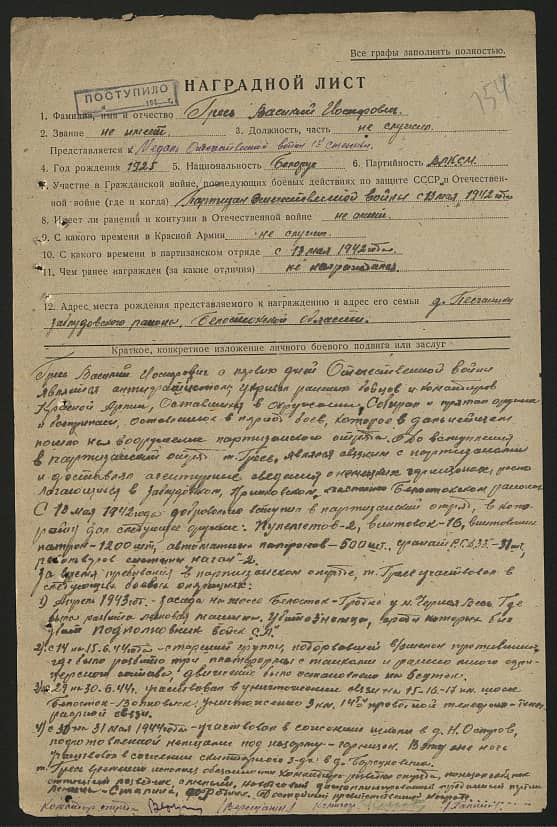 Все графы заполнять полностью.
ПОСТУПИЛО
154
НАГРАДНОЙ ЛИСТ
1. Фамилия, имя и отчество Гресь Василий Нестерович.
2. Звание не имеет. 3. Должность, часть не служил.
Представляется к Медаль Отечественной войны 1й степени.
4. Год рождения 1925 5. Национальность Белорус 6. Партийность ВЛКСМ.
7. Участие в Гражданской войне, последующих боевых действиях по защите СССР и Отечествен-
ной войне (где и когда) Партизан Отечественной войны с 13 мая 1942 года
8. Имеет ли ранения и контузии в Отечественной войне не имеет.
9. С какого времени в Красной Армии не служил.
10. С какого времени в партизанском отряде с 13 мая 1942 года.
11. Чем ранее награжден (за какие отличия) не награждался.
12. Адрес места рождения представляемого к награждению и адрес его семьи д.
Заблудовского района, Белостокской области.
Краткое, конкретное изложение личного боевого подвига или заслуг
Гресь Василий Нестерович с первых дней Отечественной войны
является антифашистом укрывал раненых бойцов и командиров
Красной Армии, оставшихся в окружении. Собирал и прятал оружие
и боеприпасы, оставленные в период боев, которое в дальнейшем
пошло на вооружение партизанского отряда. До вступления
в партизанский отряд т. Гресь, являлся связным с партизанами
и доставлял агентурные сведения о немецких гарнизонах, распо-
лагающихся в Заблудовском, Белостокском районах
С 13 мая 1942 года добровольно вступил в партизанский отряд, в кото-
рый сдал следующее оружие: Пулеметов-2, винтовок-16, винтовочных
патрон-1200 шт, автоматных патронов-500 шт., гранат Р.Г.Д.33.-31 шт,
наган-2.
За время пребывания в партизанском отряде, т. Гресь участвовал в
следующих боевых операциях:
1) Апрель 1943 г.- засада на шоссе Белосток-Гродно у м. Черная Весь. Где
была разбита легковая машина. Убито 3 немца, один из которых был
убит подполковник войск С.С."
2) с 14 на 15.6.44 года - старший группы, подорвавшей эшелон противника,
где было разбито три платформы с танками и ранено много офи-
церского состава, движение было остановлено на
3) с 29 на 30.6.44. участвовал в уничтожении связи на 15-16-17 км. шоссе
Белосток-Волковыск: уничтожено 3 км. 14ти проводной телефоно-телег-
рафной связи.
4) с 30 на 31 мая 1944 года - участвовал в сожжении школы в д. Н. Остров,
подготовленной немцами под казарму - гарнизон. В эту же ночь
участвовал в сожжении з-да в д.
т. Гресь временно исполнял обязанности командира разведки отряда,
Ленина - Сталина,
Командир отряда